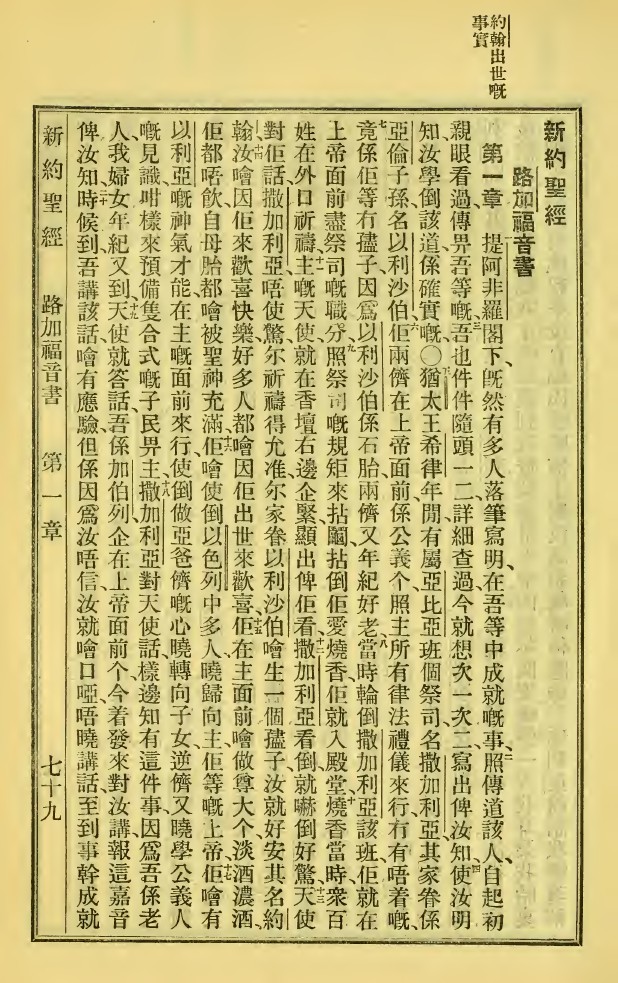 約翰出世嘅
事實
新約聖經
路加福音書
第一章 提阿非羅閣下、既然有多人落筆寫明、在吾等中成就嘅事、二照傳道該人、自起初
親眼看過傳畀吾等嘅、三吾也件件隨頭一二詳細查過、今就想次一次二寫出俾汝知、四使汝明
知汝學倒該道係確實嘅〇五猶太王希律年閒有屬亞比亞班個祭司名撒加利亞、其家眷係
亞倫子孫名以利沙伯、六佢兩儕在上帝面前係公義个、照主所有律法禮儀來行、冇有唔着嘅、
七竟係佢等冇孻子、因爲以利沙伯係石胎、兩儕又年紀好老、八當時輪倒撒加利亞該班、佢就在
上帝面前盡祭司嘅職分、九照祭司嘅規矩來拈鬮、拈倒佢愛燒香、佢就入殿堂燒香、十當時衆百
姓在外口祈禱、十一主嘅天使、就在香壇右邊企緊顯出俾佢看、十二撒加利亞看倒、就嚇倒好驚、十三天使
對佢話、撒加利亞、唔使驚、尔祈禱得允准、尔家眷以利沙伯噲生一個孻子、汝就好安其名約
翰、十四汝噲因佢來歡喜快樂、好多人都噲因佢出世來歡喜、十五佢在主面前噲做尊大个、淡酒濃酒、
佢都唔飲、自母胎都噲被聖神充滿、十六佢噲使倒以色列中多人、曉歸向主佢等嘅上帝、十七佢噲有
以利亞嘅神氣才能、在主嘅面前來行、使倒做亞爸儕嘅心、曉轉向子女、逆儕又曉學公義人
嘅見識、咁樣來預備隻合式嘅子民畀主、十八撒加利亞對天使話、樣邊知有這件事、因爲吾係老
人、我婦女年紀又到、十九天使就答話、吾係加伯列、企在上帝面前个、今着發來對汝講、報這嘉音
俾汝知、二十時候到、吾講該話、噲有應驗、但係因爲汝唔信、汝就噲口啞、唔曉講話、至到事幹成就
新約聖經 路加福音書 第一章 七十九